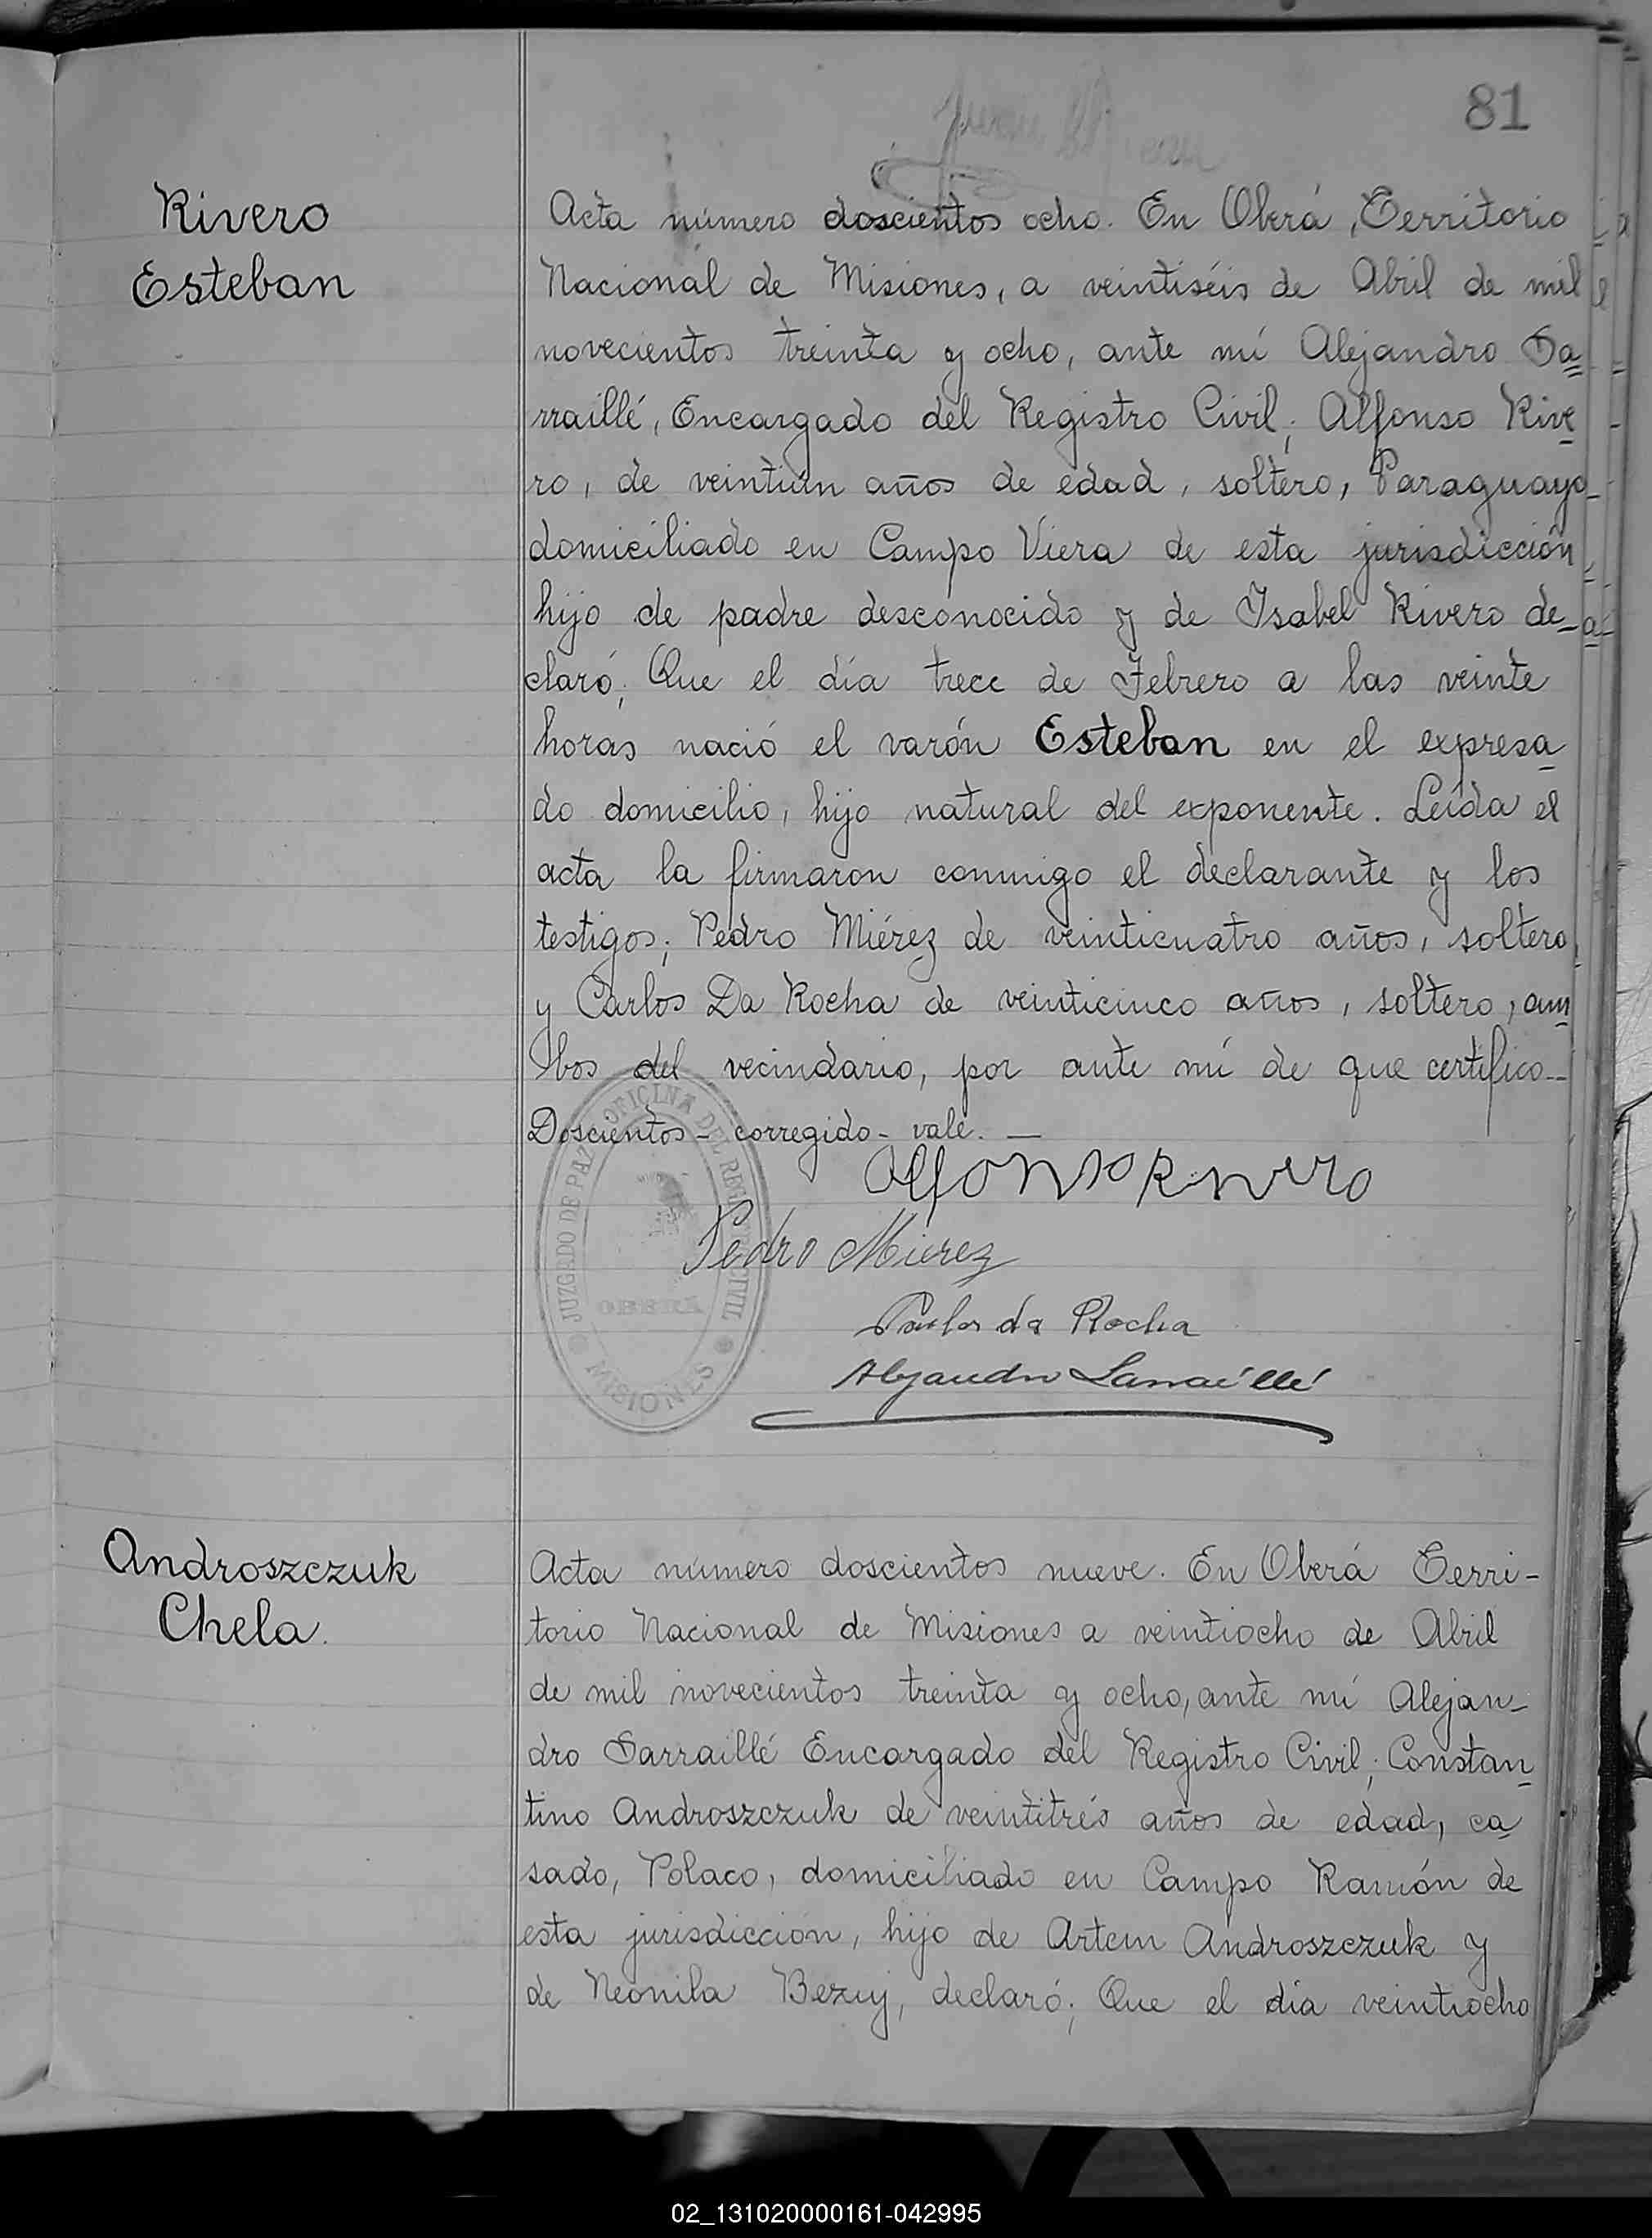 81
Rivero
Esteban
Acta número doscientos ocho. En Oberá, Territorio
Nacional de Misiones, a veintiséis de Abril de mil
novecientos treinta y ocho, ante mí Alejandro Sa
rraillé, Encargado del Registro Civil; Alfonso Rive
ro, de veintiún años de edad, soltero, Paraguayo
domiciliado en Campo Viera de esta jurisdicción,
hijo de padre desconocido y de Isabel Rivero de-
claró; Que el día trece de Febrero a las veinte
horas nació el varón Esteban en el expresa
do domicilio, hijo natural del exponente. Leída el
acta la firmaron conmigo el declarante y los
testigos; Pedro Miérez de veinticuatro años, soltero,
y Carlos Da Rocha de veinticinco años, soltero, am
bos del vecindario, por ante mí de que certifico--
Doscientos - corregido - vale. —
Alfonso Rivero
Pedro Mierez
Carlos da Rocha
Alejandro Sarraillé
JUZGADO DE PAZ OFICINA DEL REGISTRO CIVIL
OBERÁ
MISIONES
Androszczuk
Chela.
Acta número doscientos nueve. En Oberá Terri-
torio Nacional de Misiones a veintiocho de Abril
de mil novecientos treinta y ocho, ante mí Alejan-
dro Sarraillé Encargado del Registro Civil; Constan
tino Androszczuk de veintitrés años de edad, ca
sado, Polaco, domiciliado en Campo Ramón de
esta jurisdicción, hijo de Artem Androszczuk y
de Neonila Bezuj, declaró; Que el día veintiocho
02_131020000161-042995